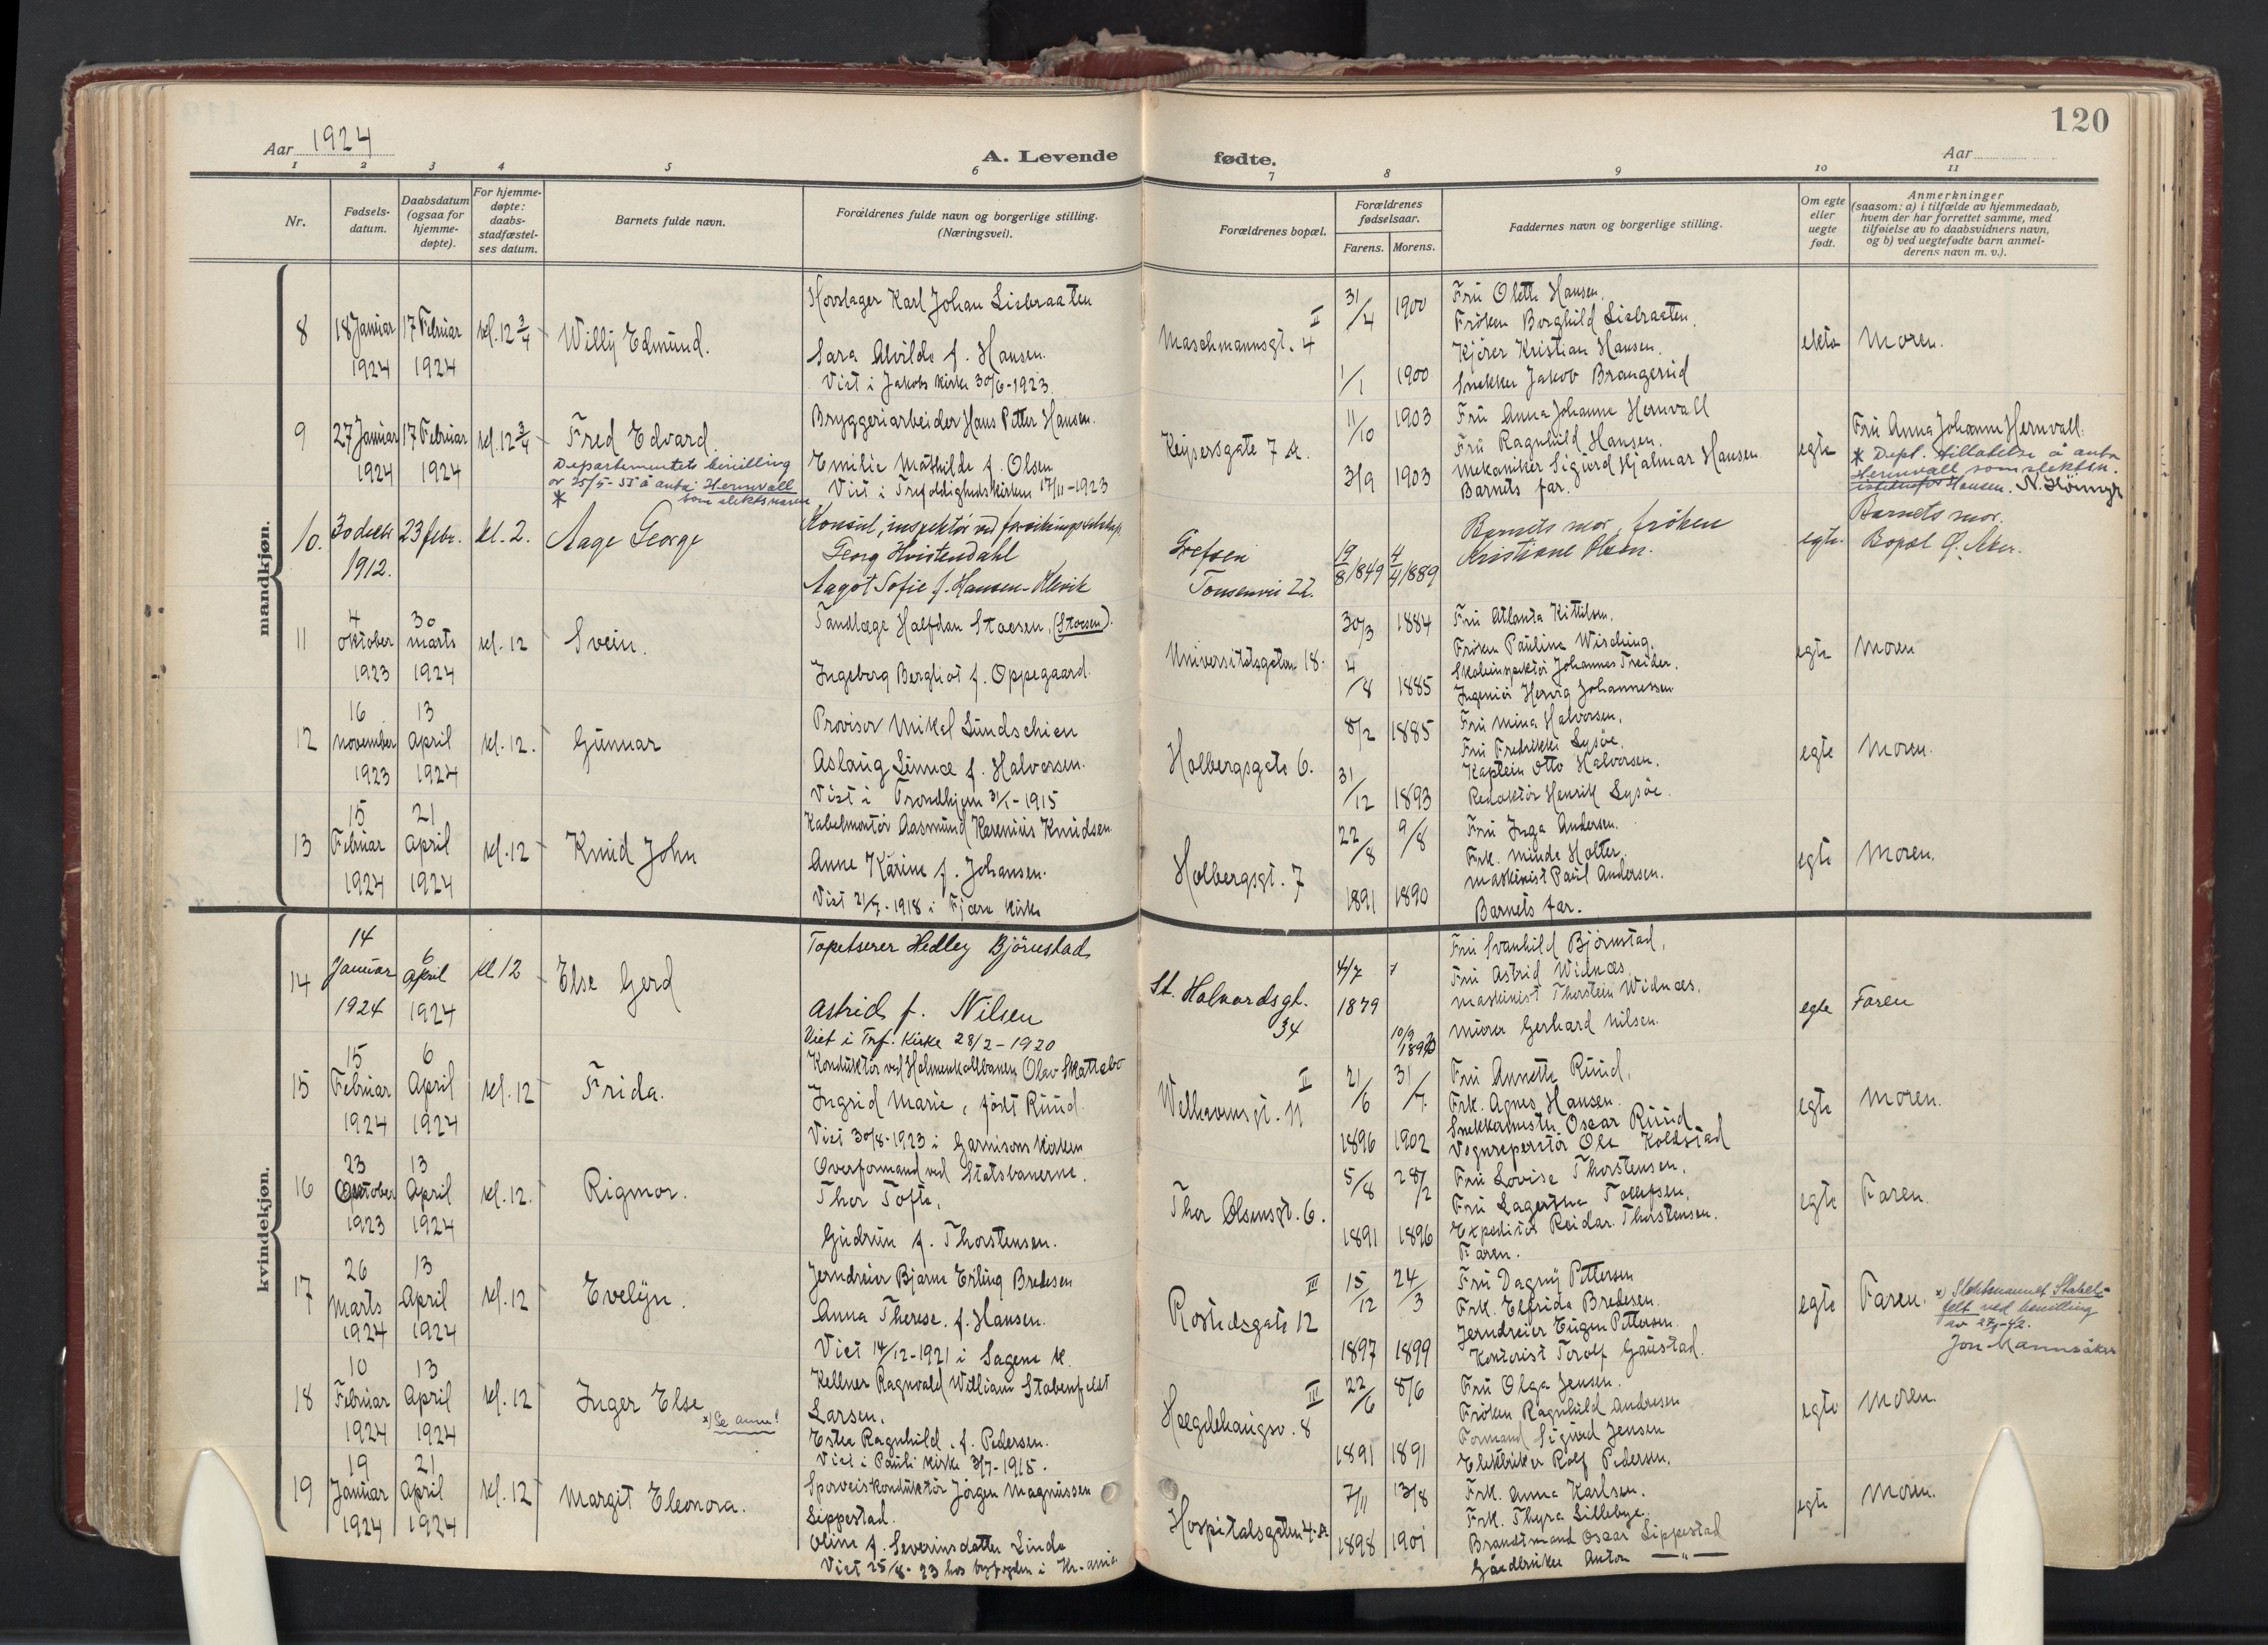 120
Aar 1924
A. Levende fødte.
Aar
1 2 3 4 5 6 7 8 9 10 11
Nr.
Fødsels-
datum.
Daabsdatum
(ogsaa for
hjemme-
døpte).
For hjemme-
døpte:
daabs-
stadfæstel-
ses datum.
Barnets fulde navn.
Forældrenes fulde navn og borgerlige stilling.
(Næringsvei).
Forældrenes bopæl.
Forældrenes
fødselsaar.
Farens. Morens.
Faddernes navn og borgerlige stilling.
Om egte
eller
uegte
født.
Anmerkninger
(saasom: a) i tilfælde av hjemmedaab,
hvem der har forrettet samme, med
tilføielse av to daabsvidners navn,
og b) ved uegtefødte barn anmel-
derens navn m. v.).
mandkjøn.
8
18 Januar
1924
17 Februar
1924
kl. 12 3/4
Willy Edmund.
Karl Johan Liebraaten
Sara Alvilde f. Hansen.
Viet i Jakobs kirke 30/6-1923.
Maschmannsgt. 4 II
31/4 1900
1/1 1900
Fru Olette Hansen.
Frøken Borghild Liebraaten.
Kjører Kristian Hansen.
Snekker Jakob Brangerud
ekte
Moren.
9
27 Januar
1924
17 Februar
1924
kl. 12 3/4
Fred Edvard.
Departementets bevilling
av 25/5-55 å anta Hernvall
* som slektsnavn
Bryggeriarbeider Hans Petter Hansen.
Emilie Mathilde f. Olsen
Viet i Trefoldighedskirken 17/11-1923
Keysersgate 7 A.
11/10 1903
3/9 1903
Fru Anna Johanne Hernvall
Fru Ragnhild Hansen.
Mekaniker Sigurd Hjalmar Hansen
Barnets far.
egte
Fru Anna Johanne Hernvall.
* Dept. tillatelse å anta
Hernvall som slektsn.
istedenfor Hansen.
10.
30 decbr
1912.
23 febr.
kl. 2.
Aage George
Konsul, inspektør ved forsikringsselskap.
Georg Hvistendahl
Aagot Sofie f. Hansen-Klevik
Grefsen
Tonsenvei 22.
19/8 1849
4/4 1889
Barnets mor, frøken
Kristiane Olsen.
egte.
Barnets mor.
Bopæl Ø. Aker.
11
4
oktober
1923
30
marts
1924
kl. 12
Svein.
Tandlæge Halfdan Staesen, (Stoesen).
Ingeborg Bergliot f. Oppegaard.
Universitetsgaten 18.
30/3 1884
4/8 1885
Fru Atlanta Kittilsen.
Frøken Pauline Wisching.
Skoleinspektør Johannes Treider.
Ingeniør Hervig Johannessen
egte
Moren
12
16
november
1923
13
April
1924
kl. 12.
Gunnar
Provisor Mikal Lundschien
Aslaug Linnæ f. Halvorsen.
Viet i Trondhjem 31/1-1915
Holbergsgate 6.
8/2 1885
31/12 1893
Fru Mina Halvorsen.
Fru Fredrikke Lysøe.
Kaptein Otto Halvorsen.
Redaktør Henrik Lysøe.
egte
Moren.
13
15
Februar
1924
21
April
1924
kl. 12
Knud John
Kabelmontør Aasmund Kerenius Knudsen
Anne Karine f. Johansen.
Viet 21/7-1918 i Fjære kirke
Holbergsgt. 7
22/8 9/8
1891 1890
Fru Inga Andersen.
Frk. Minda Holter.
Maskinist Paul Andersen.
Barnets far.
egte
Moren.
kvindekjøn.
14
14
Januar
1924
6
April
1924
kl 12
Else Gerd
Tapetserer Hedley Björnestad
Astrid f. Nilsen
Viet i Trf. Kirke 28/2-1920
St. Halvardsgt.
34
4/7
1879
10/9
Fru Svanhild Bjørnstad,
Fru Astrid Widnæs.
Maskinist Thorstein Widnæs.
Murer Gerhard Nilsen.
egte
Faren
15
15
Februar
1924
6
April
1924
kl. 12
Frida.
Konduktør ved Holmenkollbanen Olav Skattebo
Ingrid Marie, født Ruud.
Viet 30/8-1923 i Garnisons kirken
Welhavensgt. 11 II
21/6 31/7
1896 1902
Fru Annette Ruud,
Frk. Agnes Hansen.
Snekkermester Oscar Ruud
Vognreperatør Ole Koldstad
egte
Moren.
16
23
Oktober
1923
13
April
1924
kl. 12.
Rigmor.
Overformand ved Statsbanerne.
Thor Tofte,
Gudrun f. Thorstensen.
Thor Olsensgt. 6.
5/8 28/2
1891 1896
Fru Lovise Thorstensen.
Fru Lagertha Tollefsen.
Expeditør Reidar Thorstensen.
Faren.
egte
Faren.
17
26
Marts
1924
13
April
1924
kl. 12
Evelyn.
Jerndreier Bjarne Erling Bredesen
Anna Therese f. Hansen.
Viet 14/12-1921 i Sagene k.
Rostedsgate 12 III
15/12 24/3
1897 1899
Fru Dagny Pettersen
Frk. Elfrida Bredesen.
Jerndreier Eugen Pettersen.
Kontorist Torolf Gaustad.
egte
Faren.
x) Slektsnavnet Stabel-
felt ved bevilling
av 27/3-42.
Jon Mannsåker
18
10
Februar
1924
13
April
1924
kl. 12
Inger Else
x) Se anm!
Kellner Ragnvald William Stabenfeldt
Larsen.
Ester Ragnhild f. Pedersen.
Viet i Pauli kirke 3/7-1915.
Hægdehaugsv. 8 III
22/6 8/6
1891 1891
Fru Olga Jensen.
Frøken Ragnhild Andresen
Formand Sigurd Jensen
Elektriker Rolf Pedersen.
egte
Moren.
19
19
Januar
1924
21
April
1924
kl. 12
Margit Eleonora.
Sporveiskonduktør Jørgen Magnussen
Lippestad.
Oline f. Severinsdatter Linde
Viet 25/8-23 hos byfogden i Kr.-ania
Hospitalsgaten 4 A
7/11 13/8
1898 1901
Frk. Anna Karlsen.
Frk. Thyra Lillebye.
Brandtmand Oscar Lippestad
Gårdbruker Anton —"—
egte
Moren.